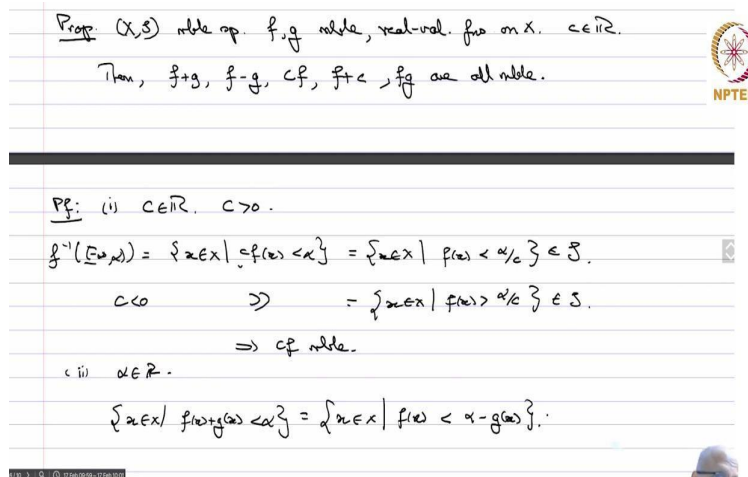 Prop. (X,S) mble sp. f,g mble, real-val. fns on X. c∈ℝ.
Then, f+g, f-g, cf, f+c, fg are all mble.
NPTE
Pf: (i) c∈ℝ. c>0.
f⁻¹([-∞,α)) = {x∈X | cf(x) <α} = {x∈X | f(x) < α/c } ∈ S.
c<0 〃 = {x∈X | f(x) > α/c } ∈ S.
⇒ cf mble.
(ii) α∈ℝ.
{x∈X | f(x)+g(x) <α} = {x∈X | f(x) < α-g(x)}.